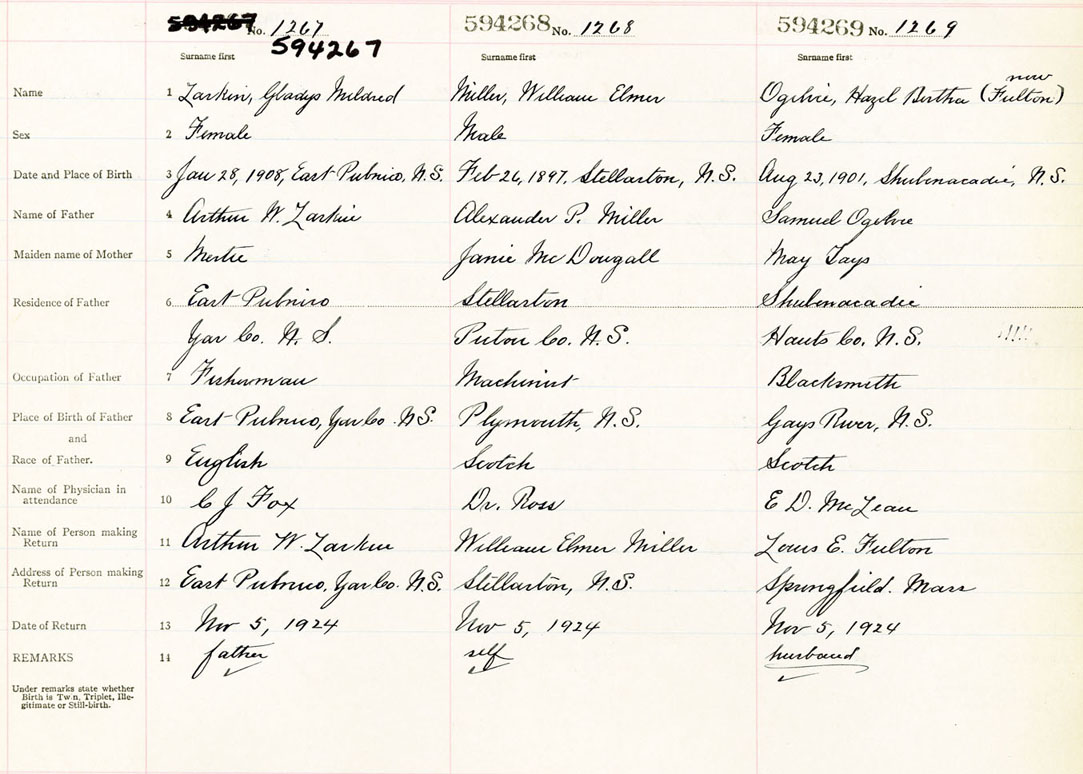 594267 No. 1267 594268 No. 1268 594269 No. 1269
594267
Surname first Surname first Surname first
now
Name 1 Larkin, Gladys Mildred Miller, William Elmer Ogilvie, Hazel Bertha (Fulton)
Sex 2 Female Male Female
Date and Place of Birth 3 Jan 28, 1908, East Pubnico, N.S. Feb 26, 1897, Stellarton, N.S. Aug 23, 1901, Shubenacadie, N.S.
Name of Father 4 Arthur W. Larkin Alexander P. Miller Samuel Ogilvie
Maiden name of Mother 5 Mertie Janie McDougall May Tays
Residence of Father 6 East Pubnico Stellarton Shubenacadie
Yar Co. N. S. Pictou Co. N.S. Hants Co. N.S.
Occupation of Father 7 Fisherman Machinist Blacksmith
Place of Birth of Father 8 East Pubnico, Yar Co. N.S. Plymouth, N.S. Gays River, N.S.
and
Race of Father. 9 English Scotch Scotch
Name of Physician in
attendance 10 C J Fox Dr. Ross E D. McLean
Name of Person making
Return 11 Arthur W. Larkin William Elmer Miller Louis E. Fulton
Address of Person making
Return 12 East Pubnico, Yar Co. N.S. Stellarton, N.S. Springfield. Mass
Date of Return 13 Nov 5, 1924 Nov 5, 1924 Nov 5, 1924
REMARKS 14 father self husband
Under remarks state whether
Birth is Twin, Triplet, Ille-
gitimate or Still-birth.